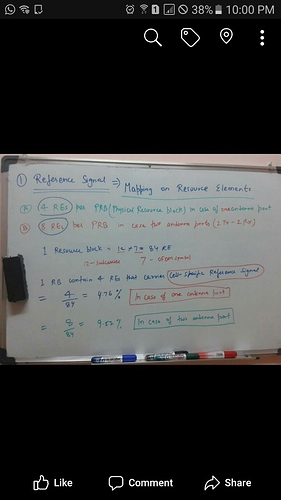 38% 10:00 PM
① Reference Signal ⇒ Mapping on Resource Elements
Ⓐ 4 REs per PRB (Physical Resource block) in case of one antenna port
Ⓑ 8 REs per PRB in case two antenna ports (2 Tx - 2 Rx)
1 Resource block = 12 × 7 = 84 RE
12 - subcarrier 7 - OFDM symbol
1 RB contain 4 REs that carries Cell-Specific Reference Signal
= 4/84 = 4.76 % In case of one antenna port
= 8/84 = 9.52 % In case of two antenna port
Like Comment Share